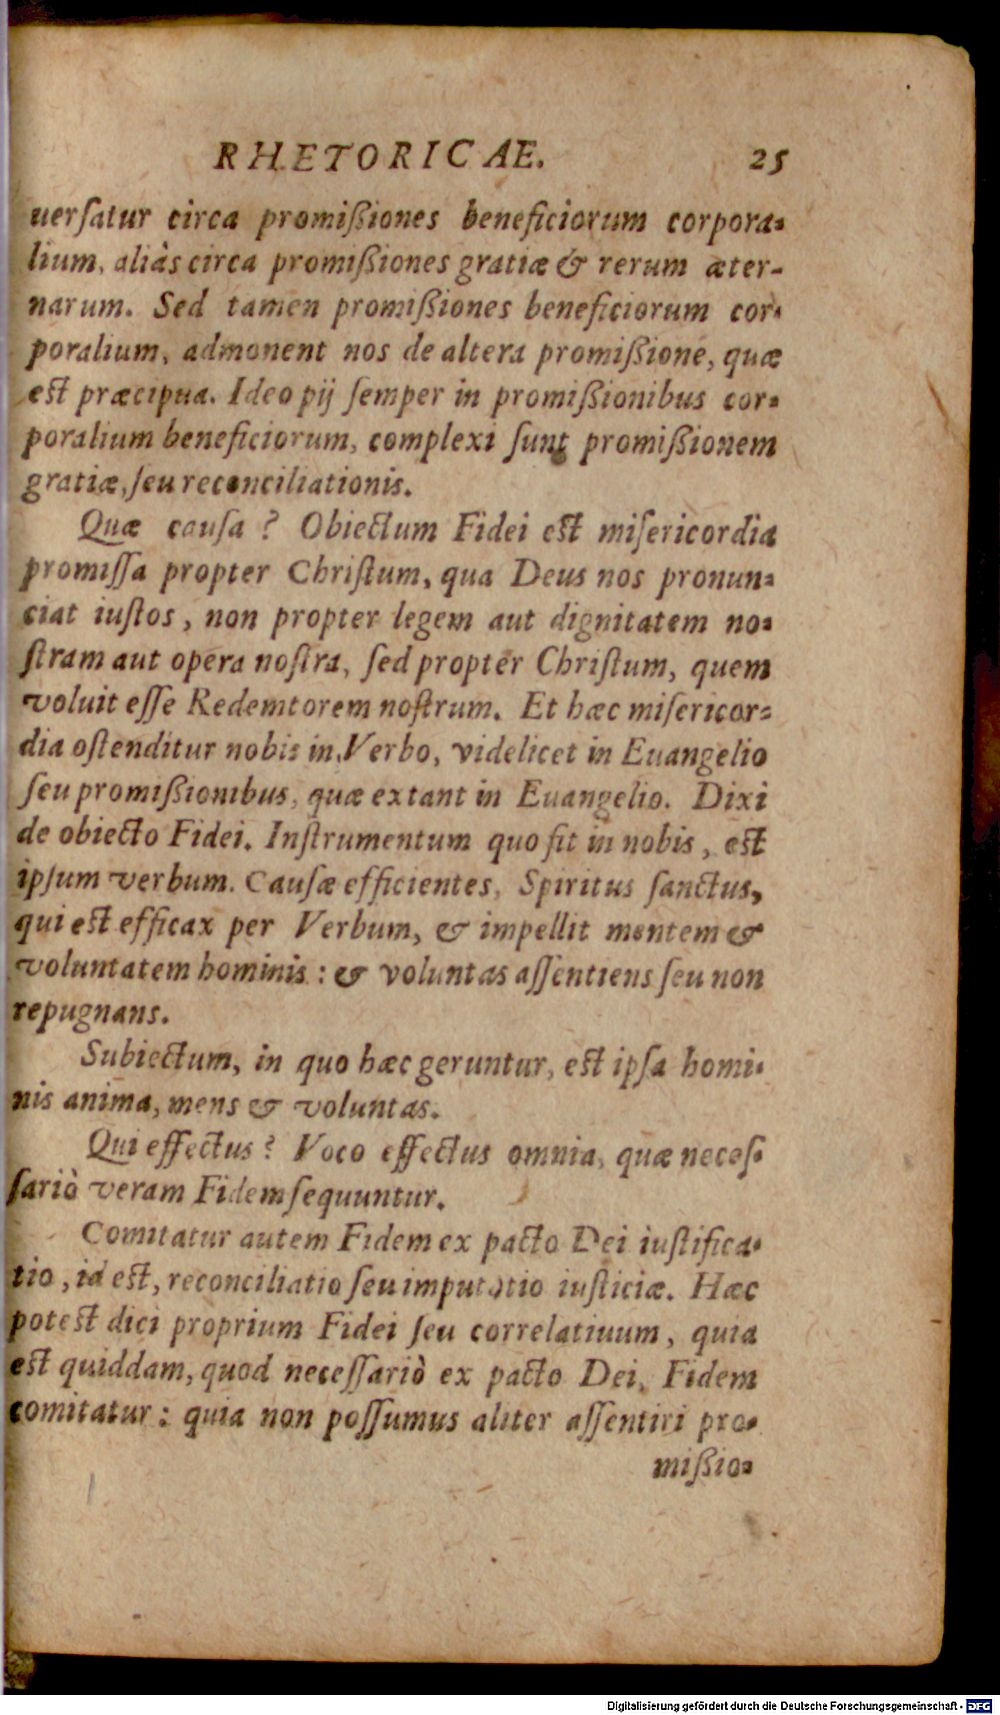 RHETORICAE. 25
uerſatur circa promißiones beneficiorum corpora-
lium, aliàs circa promißiones gratiæ & rerum æter-
narum. Sed tamen promißiones beneficiorum cor-
poralium, admonent nos de altera promißione, quæ
est præcipua. Ideo pij ſemper in promißionibus cor-
poralium beneficiorum, complexi ſunt promißionem
gratiæ, ſeu reconciliationis.
Quæ cauſa? Obiectum Fidei est miſericordia
promiſſa propter Chriſtum, qua Deus nos pronun-
ciat iuſtos, non propter legem aut dignitatem no-
ſtram aut opera noſtra, ſed propter Chriſtum, quem
voluit eſſe Redemtorem noſtrum. Et hæc miſericor-
dia oſtenditur nobis in Verbo, videlicet in Euangelio
ſeu promißionibus, quæ extant in Euangelio. Dixi
de obiecto Fidei. Inſtrumentum quo fit in nobis, est
ipſum verbum. Cauſæ efficientes, Spiritus ſanctus,
qui est efficax per Verbum, & impellit mentem &
voluntatem hominis: & voluntas aſſentiens ſeu non
repugnans.
Subiectum, in quo hæc geruntur, est ipſa homi-
nis anima, mens & voluntas.
Qui effectus? Voco effectus omnia, quæ neceſ-
ſariò veram Fidem ſequuntur.
Comitatur autem Fidem ex pacto Dei iuſtifica-
tio, id est, reconciliatio ſeu imputatio iuſticiæ. Hæc
potest dici proprium Fidei ſeu correlatiuum, quia
est quiddam, quod neceſſariò ex pacto Dei, Fidem
comitatur: quia non poſſumus aliter aſſentiri pro-
mißio-
Digitalisierung gefördert durch die Deutsche Forschungsgemeinschaft - DFG